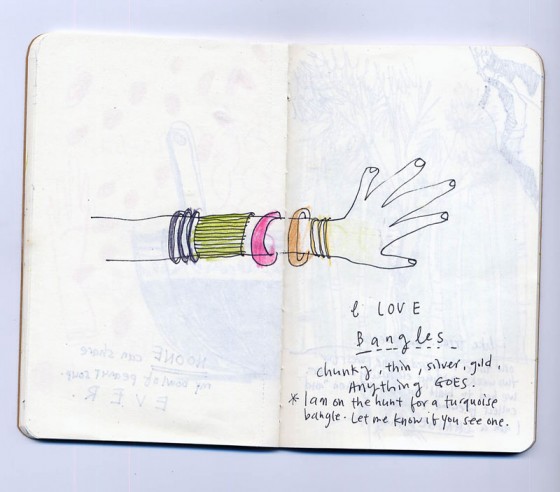 I LOVE
Bangles
chunky, thin, silver, gold.
ANYTHING GOES.
* I am on the hunt for a turquoise
bangle. Let me know if you see one.
NO ONE can share
my bowl of peanut soup.
EVER.